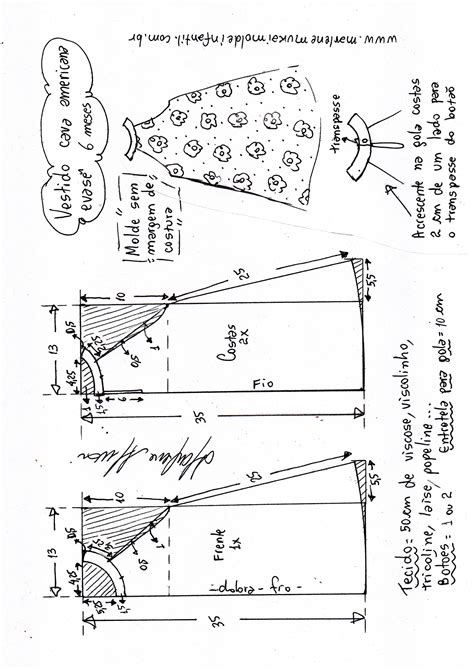 Vestido cava americana
evasê 6 meses
www.marlenemukaimoldeinfantil.com.br
"Molde sem
margem de
costura"
transpasse
Acrescente na gola costas
2 cm de um lado para
o transpasse do botão
13
10
25
5,5
0,5
4,25
4,25
0,5
1
1
1,5
6
Costas
2x
Fio
35
13
10
25
5,5
0,5
4,25
4,25
0,5
1
1,5
Frente
1x
dobra - fio
35
Tecido = 50 cm de viscose, viscolinho,
tricoline, laise, popeline...
Botões = 1 ou 2 Entretela para gola = 10 cm